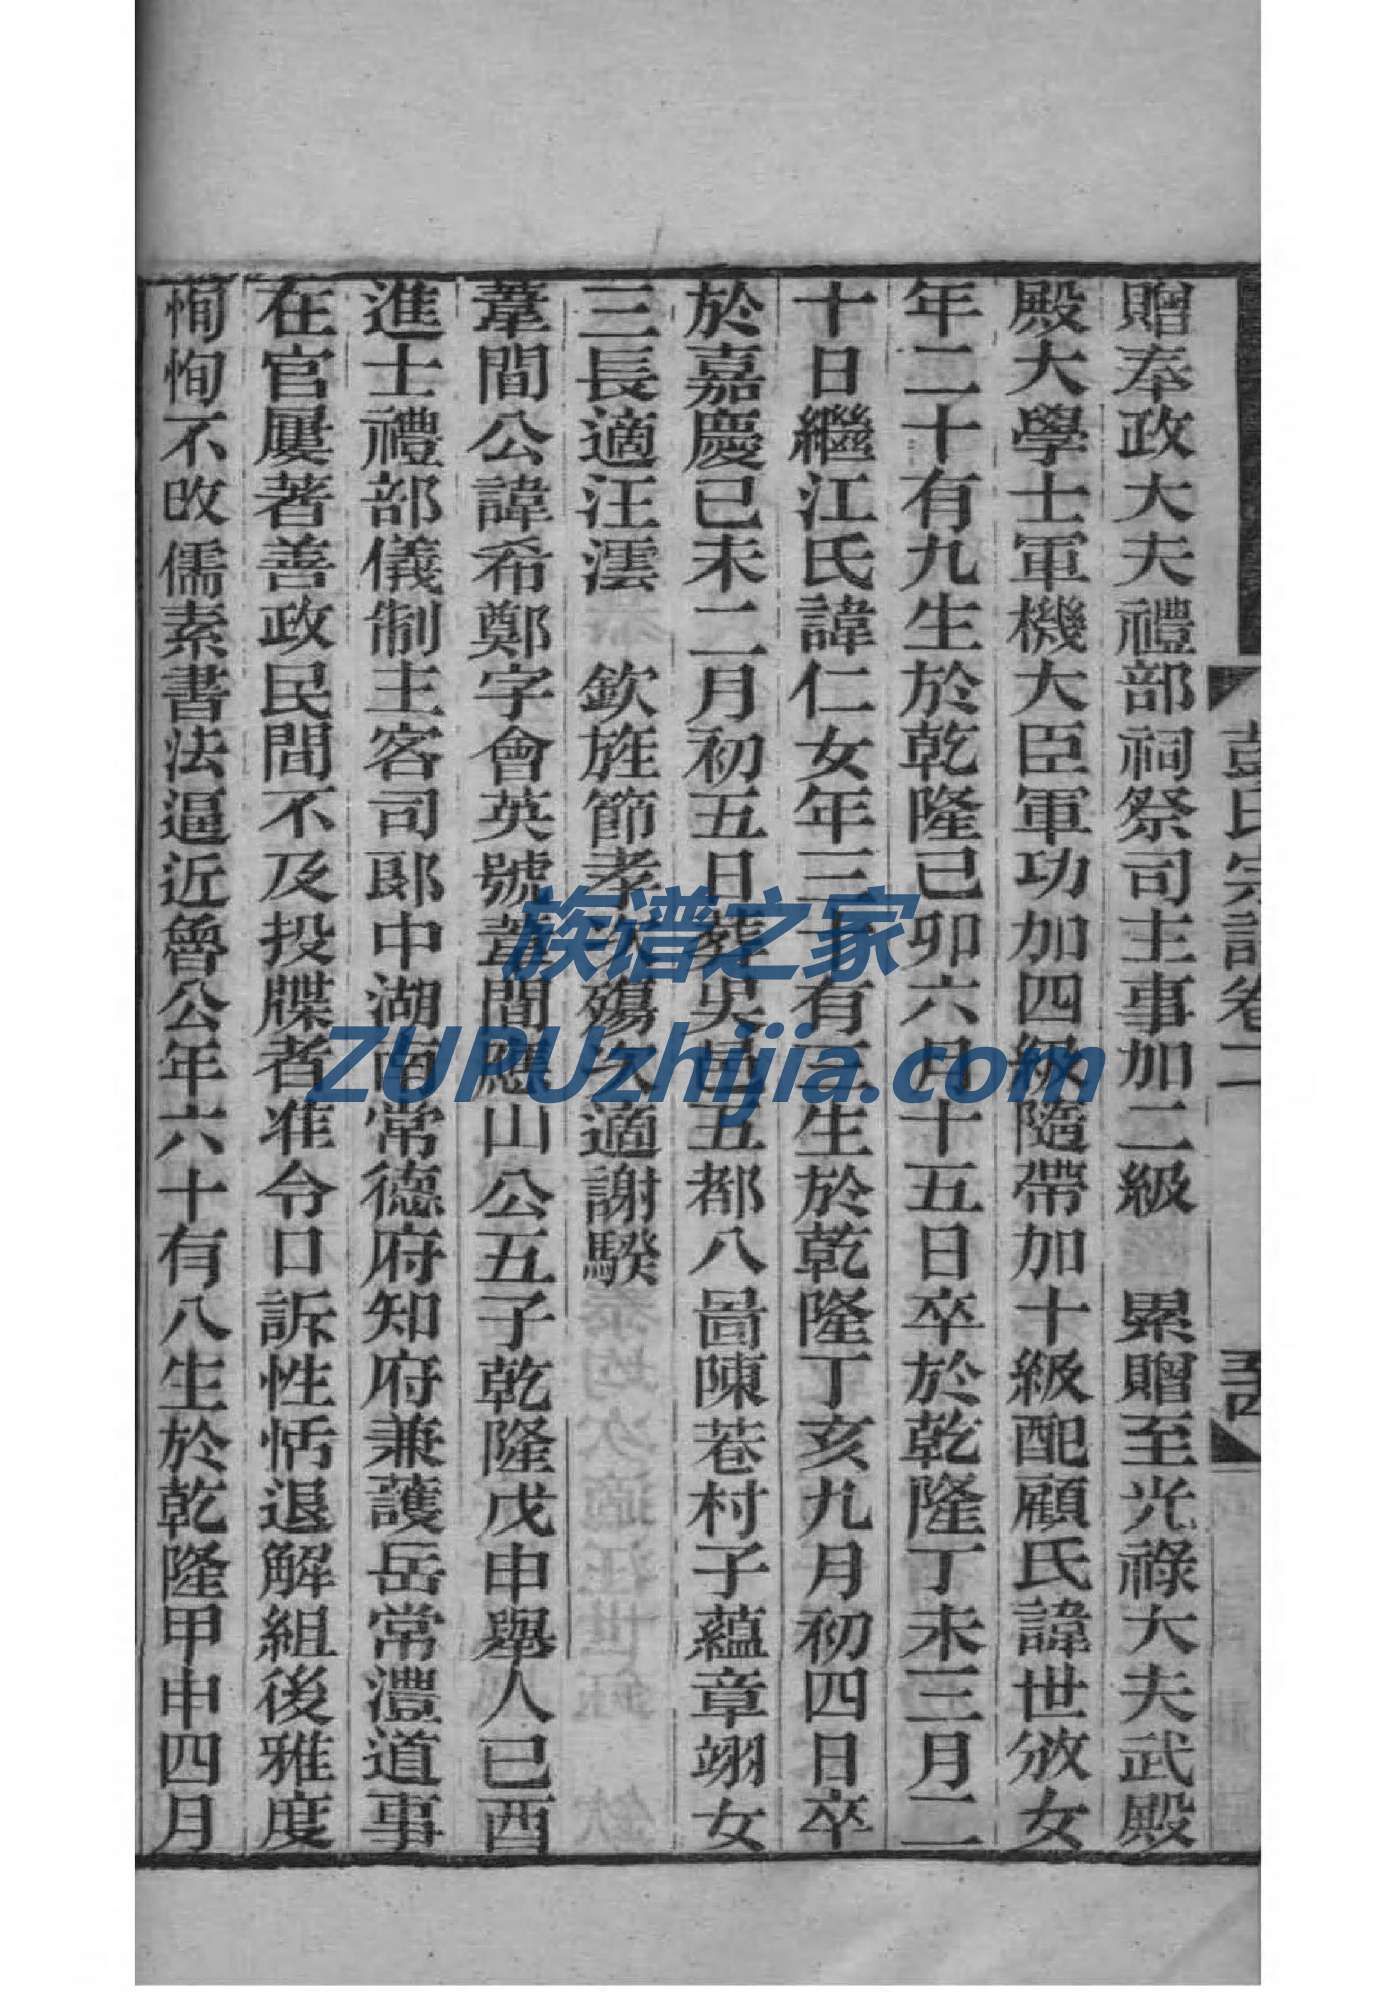 彭氏宗譜卷二
贈奉政大夫禮部祠祭司主事加二級　累贈至光祿大夫武殿
殿大學士軍機大臣軍功加四級隨帶加十級配顧氏諱世㳖女
年二十有九生於乾隆己卯六月十五日卒於乾隆丁未三月二
十日繼江氏諱仁女年三十有三生於乾隆丁亥九月初四日卒
於嘉慶己未二月初五日葬吳邑五都八啚陳巷村子蘊章翊女
三長適汪澐　欽旌節孝次殤次適謝騤
葦間公諱希鄭字會英號葦間應山公五子乾隆戊申舉人已酉
進士禮部儀制主客司郎中湖南常德府知府兼護岳常澧道事
在官屢著善政民間不及投牒者准令口訴性恬退解組後雅度
恂恂不改儒素書法逼近魯公年六十有八生於乾隆甲申四月
族谱之家
ZUPUzhijia.com